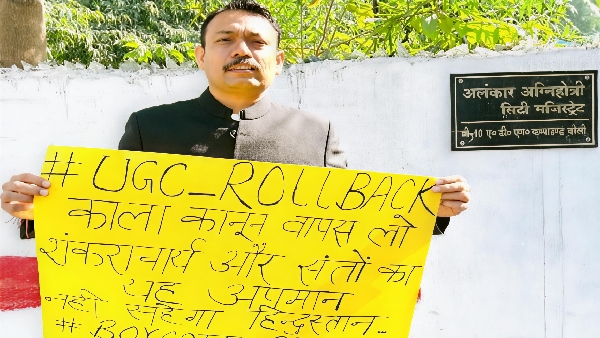 अलंकार अग्निहोत्री
सिटी मजिस्ट्रेट
ए० डी० एम० कम्पाउण्ड बरेली
# UGC_ROLLBACK
काला कानून वापस लो
शंकराचार्य और संतों का
यह अपमान
नही सहेगा हिन्दुस्तान...